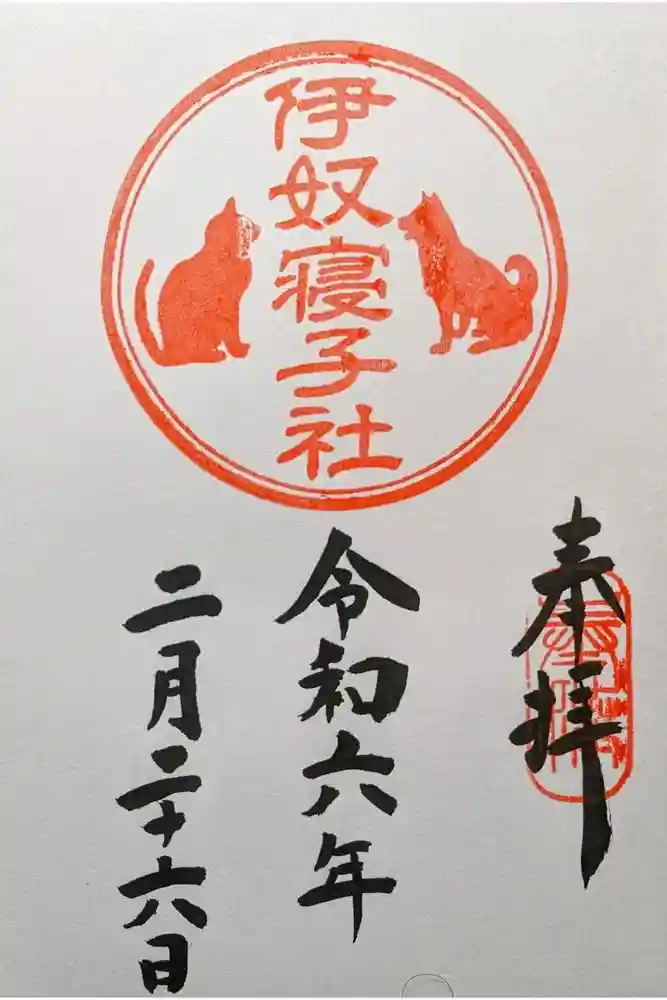 奉拝
伊奴寝子社
令和六年
二月二十六日